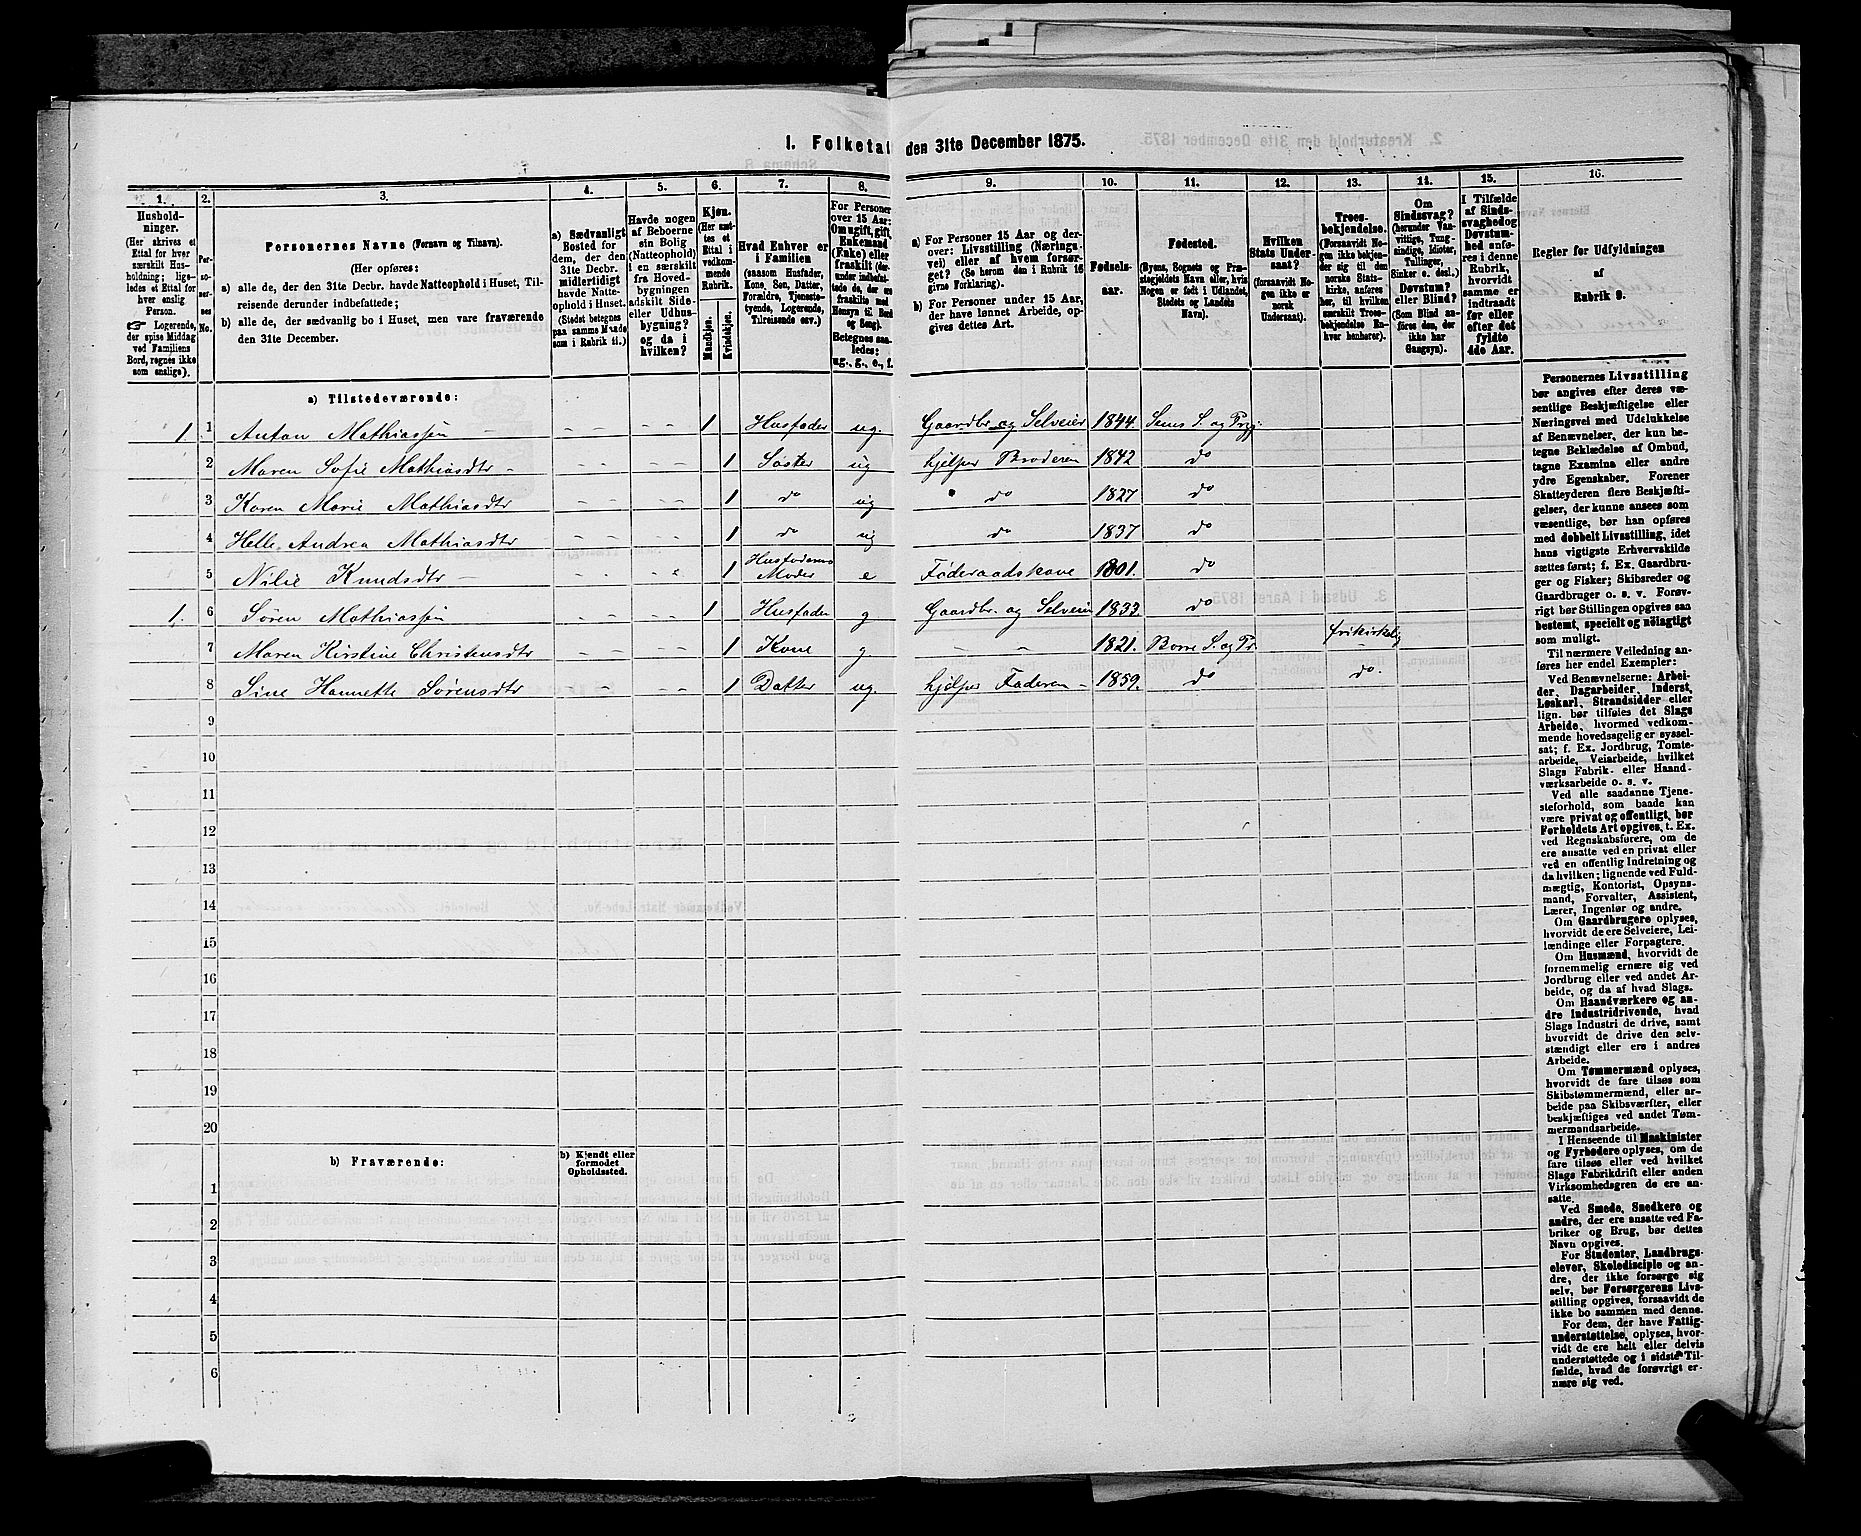 I. Folketal den 31te December 1875.
1. 2. 3. 4. 5. 6. 7. 8. 9. 10. 11. 12. 13. 14. 15. 16.
Hushold-
ninger.
(Her skrives et
Ettal for hver
særskilt Hus-
holdning; lige-
ledes et Ettal for
hver enslig
Person.
☞ Logerende,
der spise Middag
ved Familiens
Bord, regnes ikke
som enslige).
Per-
so-
ner-
nes
No.
Personernes Navne (Fornavn og Tilnavn).
(Her opføres:
a) alle de, der den 31te Decbr. havde Natteophold i Huset, Til-
reisende derunder indbefattede;
b) alle de, der sædvanlig bo i Huset, men vare fraværende
den 31te December.
a) Sædvanligt
Bosted for
dem, der den
31te Decbr.
midlertidigt
havde Natte-
ophold i Huset.
(Stedet betegnes
paa samme Maade
som i Rubrik 11.)
Havde nogen
af Beboerne
sin Bolig
(Natteophold)
i en særskilt
fra Hoved-
bygningen
adskilt Side-
eller Udhus-
bygning?
og da i
hvilken?
Kjøn.
(Her sæt-
tes et
Ettal i
vedkom-
mende
Rubrik.
Mandkjøn.
Kvindekjøn.
Hvad Enhver er
i Familien
(saasom Husfader,
Kone, Søn, Datter,
Forældre, Tjeneste-
tyende, Logerende,
Tilreisende osv.)
For Personer
over 15 Aar:
Om ugift, gift,
Enkemand
(Enke) eller
fraskilt
Betegnes saa-
ledes:
ug., g., e., f.
a) For Personer 15 Aar og der-
over: Livsstilling (Nærings-
vei) eller af hvem forsør-
get? (Se herom den i Rubrik 16
givne Forklaring).
b) For Personer under 15 Aar,
der have lønnet Arbeide, op-
gives dettes Art.
Fødsels-
aar.
Fødested.
(Byens, Sognets og Præ-
stegjeldets Navn eller, hvis
Nogen er født i Udlandet,
Stedets og Landets
Navn).
Hvilken
Stats Under-
saat?
(forsaavidt No-
gen ikke er
norsk
Undersaat).
Troes-
bekjendelse.
(Forsaavidt No-
gen ikke bekjen-
der sig til den
norske Stats-
kirke, anføres
her, til hvilken
særskilt Troes-
bekjendelse En-
hver henhører).
Om
Sindssvag?
(herunder Van-
vittige, Tung-
sindige, Idioter,
Tullinger,
Sinker o. desl.)
Døvstum?
eller Blind?
(Som Blind an-
føres den, der
ikke har
Gangsyn).
I Tilfælde
af Sinds-
svaghed og
Døvstum-
hed anfø-
res i denne
Rubrik,
hvorvidt
samme er
indtraadt
før eller
efter det
fyldte
4de Aar.
Regler for Udfyldningen
af
Rubrik 9.
a) Tilstedeværende:
1. 1 Anton Mathiassen 1 Husfader ug. Gaardbr. og Selveier 1844. Sems S. og Prgj.
2 Maren Sofie Mathiasdtr 1 Søster ug hjelper Broderen 1842 do
3 Karen Marie Mathiasdtr 1 do ug do 1827 do
4 Helle Andrea Mathiasdtr 1 do ug do 1837 do
5 Nilie Knudsdtr 1 Husfaderens Moder e Føderaadskone 1801. do
1. 6 Søren Mathiassen 1 Husfader g Gaardbr. og Selveier 1833. do
7 Maren Kirstine Christensdtr 1 Kone g 1821. Borre S. og Pr. frikirkelig
8 Sine Hannette Sørensdtr 1 Datter ug. hjelper Faderen 1859. do do.
9
10
11
12
13
14
15
16
17
18
19
20
b) Fraværende:
b) Kjendt eller
formodet
Opholdssted.
1
2
3
4
5
6
Personernes Livsstilling
bør angives efter deres væ-
sentlige Beskjæftigelse eller
Næringsvei med Udelukkelse
af Benævnelser, der kun be-
tegne Beklædelse af Ombud,
tagne Examina eller andre
ydre Egenskaber. Forener
Skatteyderen flere Beskjæfti-
gelser, der kunne ansees som
væsentlige, bør han opføres
med dobbelt Livsstilling, idet
hans vigtigste Erhvervskilde
sættes først; f. Ex. Gaardbru-
ger og Fisker; Skibsreder og
Gaardbruger o. s. v. Forøv-
rigt bør Stillingen opgives saa
bestemt, specielt og nöiagtigt
som muligt.
Til nærmere Veiledning an-
føres her endel Exempler:
Ved Benævnelserne: Arbei-
der, Dagarbeider, Inderst,
Løskarl, Strandsidder eller
lign. bør tilføies det Slags
Arbeide, hvormed vedkom-
mende hovedsagelig er syssel-
sat; f. Ex. Jordbrug, Tomte-
arbeide, Veiarbeide, hvilket
Slags Fabrik- eller Haand-
værksarbeide o. s. v.
Ved alle saadanne Tjene-
steforhold, som baade kan
være privat og offentligt, bør
Forholdets Art opgives, t. Ex.
ved Regnskabsførere, om de
ere ansatte ved en privat eller
ved en offentlig Indretning og
da hvilken; lignende ved Fuld-
mægtig, Kontorist, Opsyns-
mand, Forvalter, Assistent,
Lærer, Ingeniør og andre.
Om Gaardbrugere oplyses,
hvorvidt de ere Selveiere, Lei-
lændinge eller Forpagtere.
Om Husmænd, hvorvidt de
fornemmelig ernære sig ved
Jordbrug eller ved andet Ar-
beide, og da af hvad Slags.
Om Haandværkere og an-
dre Industridrivende, hvad
Slags Industri de drive, samt
hvorvidt de drive den selv-
stændigt eller ere i andres
Arbeide.
Om Tømmermænd oplyses,
hvorvidt de fare tilsøs som
Skibstømmermænd, eller ar-
beide paa Skibsværfter, eller
beskjæftiges ved andet Tøm-
mermandsarbeide.
I Henseende til Maskinister
og Fyrbødere oplyses, om de
fare tilsøs eller ved hvilket
Slags Fabrikdrift eller anden
Virksomhedsgren de ere an-
satte.
Ved Smede, Snedkere og
andre, der ere ansatte ved Fa-
briker og Brug, bør dettes
Navn opgives.
For Studenter, Landbrugs-
elever, Skoledisciple og an-
dre, der ikke forsørge sig
selv, bør Forsørgerens Livs-
stilling opgives, forsaavidt de
ikke bo sammen med denne.
For dem, der have Fattig-
understøttelse, oplyses, hvor-
vidt de ere helt eller delvis
understøttede og i sidste Til-
fælde, hvad de forøvrigt er-
nære sig ved.